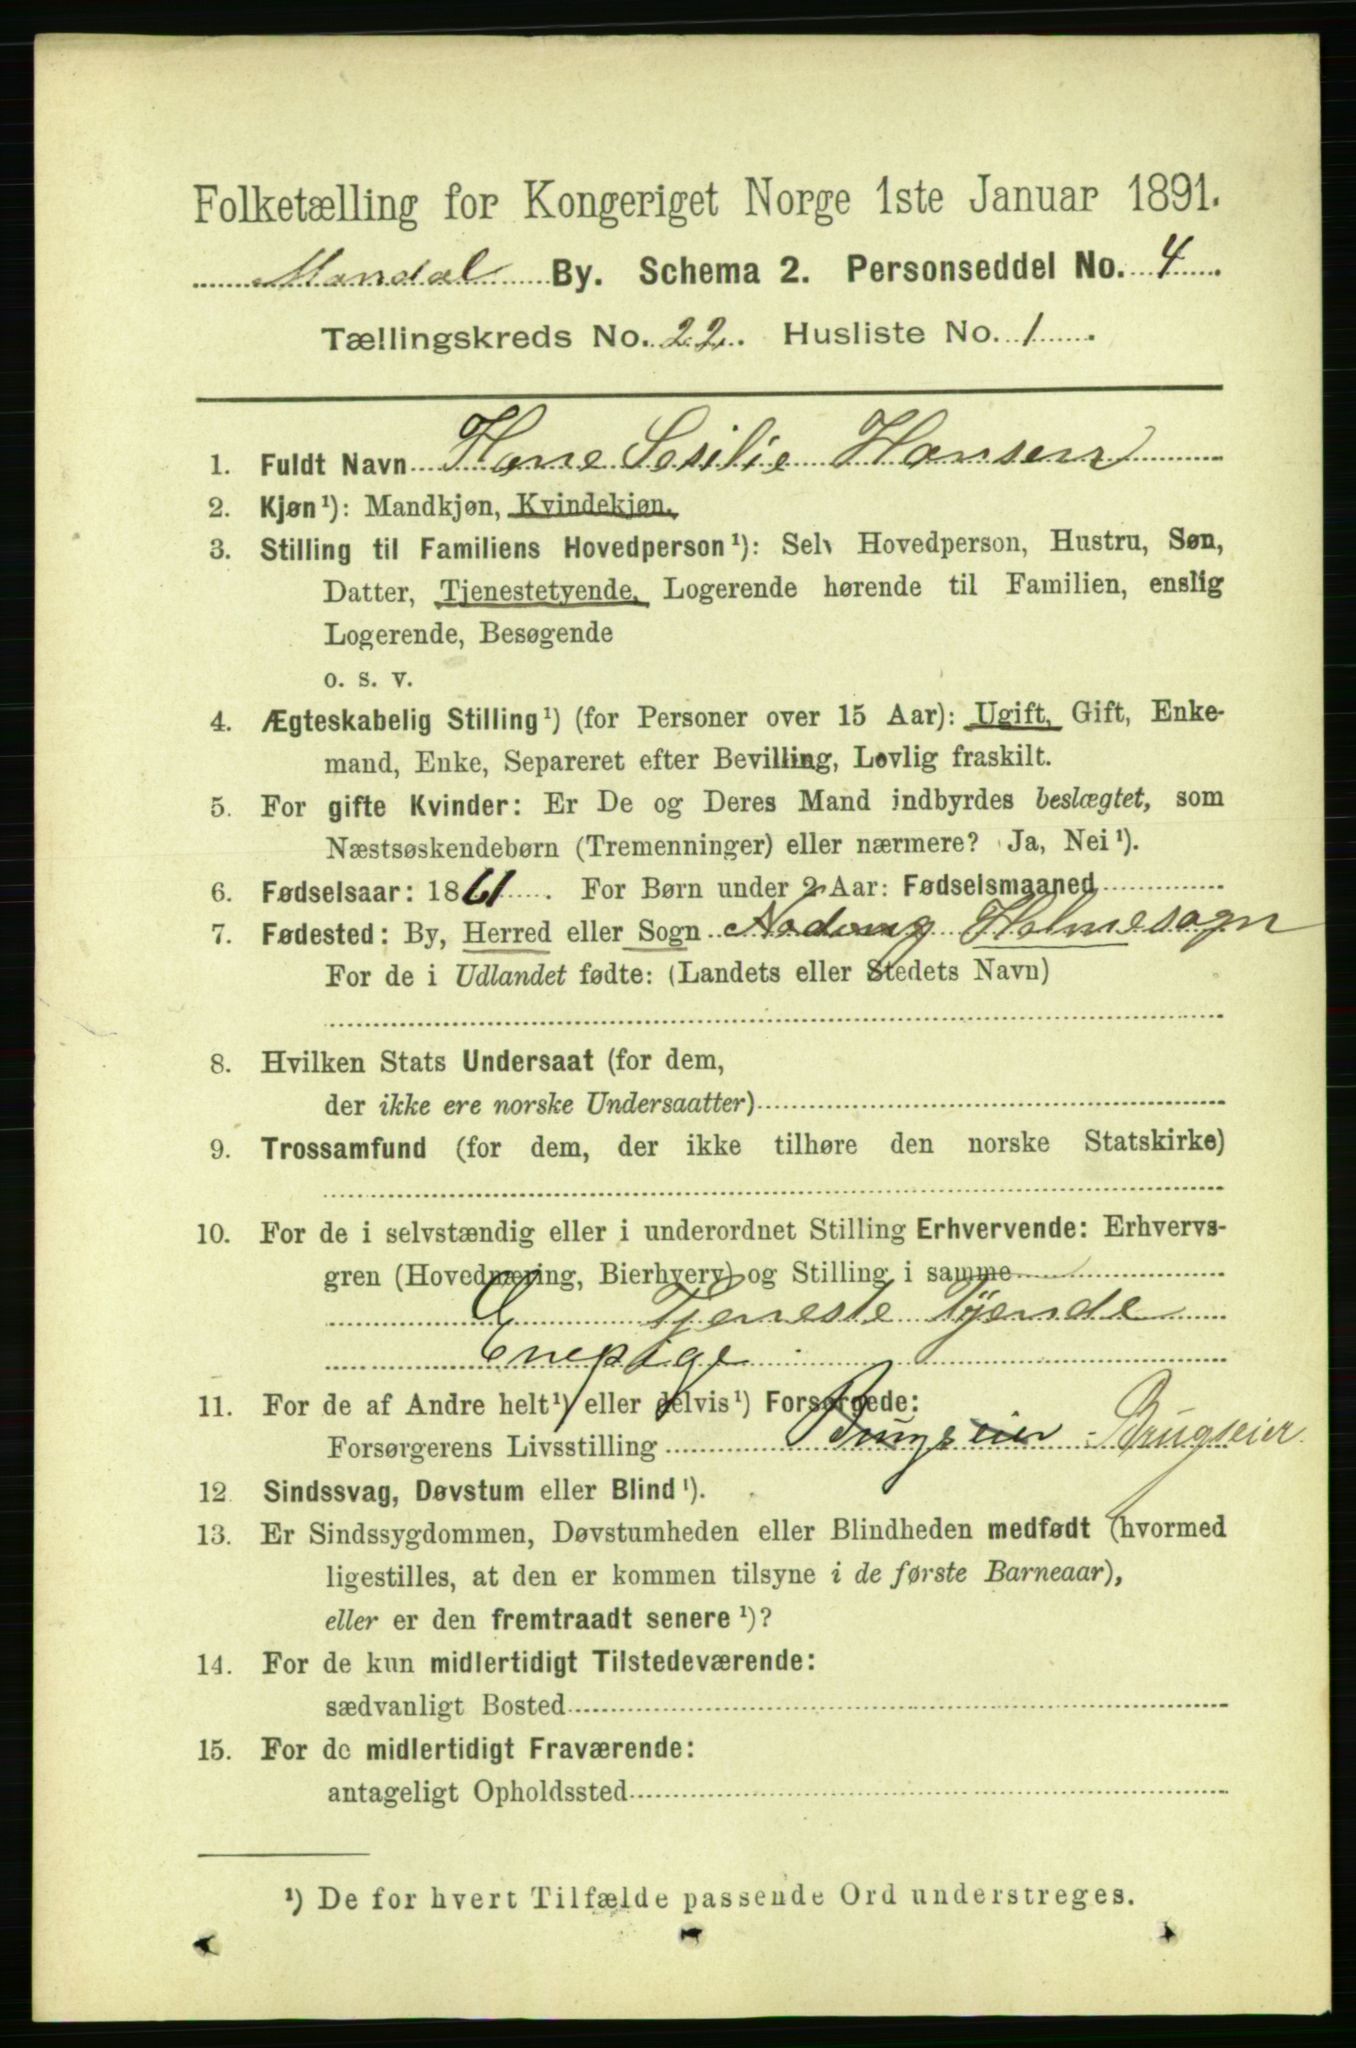 Folketælling for Kongeriget Norge 1ste Januar 1891.
Mandal By. Schema 2. Personseddel No. 4
Tællingskreds No. 22. Husliste No. 1
1. Fuldt Navn Hane Sesilie Hansen
2. Kjøn¹): Mandkjøn, Kvindekjøn.
3. Stilling til Familiens Hovedperson¹): Selv Hovedperson, Hustru, Søn,
Datter, Tjenestetyende, Logerende hørende til Familien, enslig
Logerende, Besøgende
o. s. v.
4. Ægteskabelig Stilling¹) (for Personer over 15 Aar): Ugift, Gift, Enke-
mand, Enke, Separeret efter Bevilling, Lovlig fraskilt.
5. For gifte Kvinder: Er De og Deres Mand indbyrdes beslægtet, som
Næstsøskendebørn (Tremenninger) eller nærmere? Ja, Nei¹).
6. Fødselsaar: 1861. For Børn under 2 Aar: Fødselsmaaned
7. Fødested: By, Herred eller Sogn Holmesogn
For de i Udlandet fødte: (Landets eller Stedets Navn)
8. Hvilken Stats Undersaat (for dem,
der ikke ere norske Undersaatter)
9. Trossamfund (for dem, der ikke tilhøre den norske Statskirke)
10. For de i selvstændig eller i underordnet Stilling Erhvervende: Erhvervs-
gren (Hovednæring, Bierhverv) og Stilling i samme
Tjeneste Tyende
Enepige
11. For de af Andre helt¹) eller delvis¹) Forsørgede:
Forsørgerens Livsstilling Brugseier Brugseier
12 Sindssvag, Døvstum eller Blind¹).
13. Er Sindssygdommen, Døvstumheden eller Blindheden medfødt (hvormed
ligestilles, at den er kommen tilsyne i de første Barneaar),
eller er den fremtraadt senere¹)?
14. For de kun midlertidigt Tilstedeværende:
sædvanligt Bosted
15. For de midlertidigt Fraværende:
antageligt Opholdssted
¹) De for hvert Tilfælde passende Ord understreges.